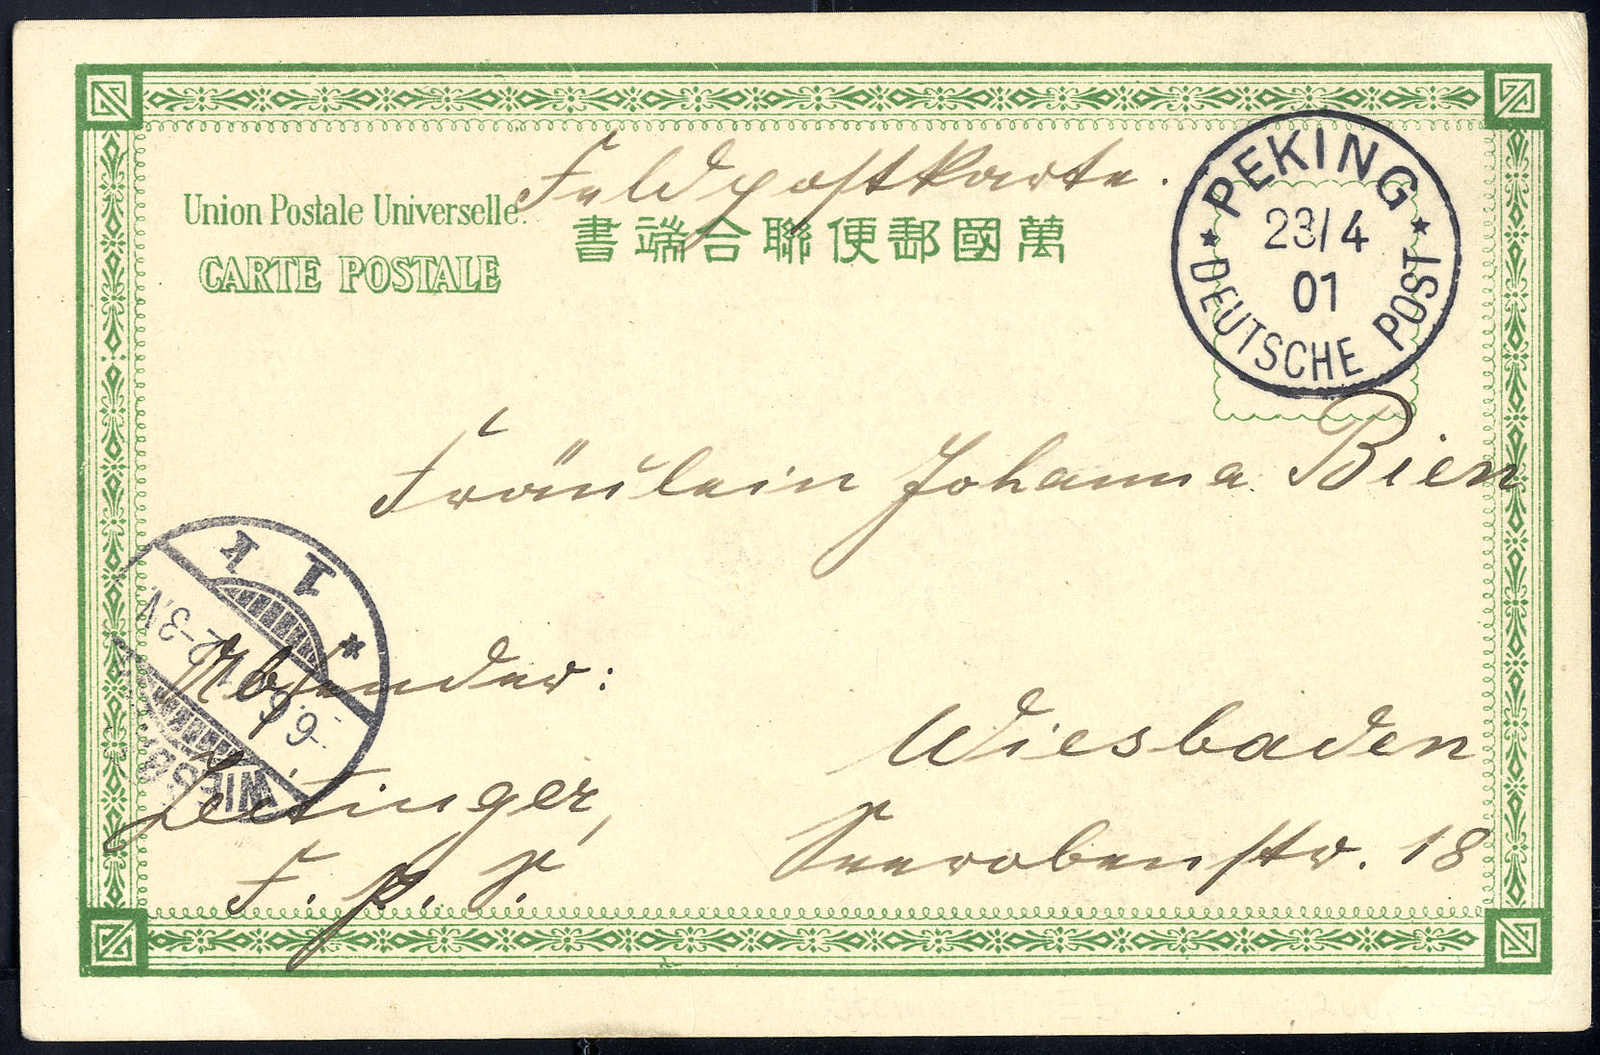 Feldpostkarte.
Union Postale Universelle.
CARTE POSTALE
書端合聯便郵國萬
PEKING
23/4
01
DEUTSCHE POST
Fräulein Johanna Bien
Wiesbaden
Seerobenstr. 18
Absender:
Zeitinger,
F. P. S.
1 k
2-3.N
WIESB